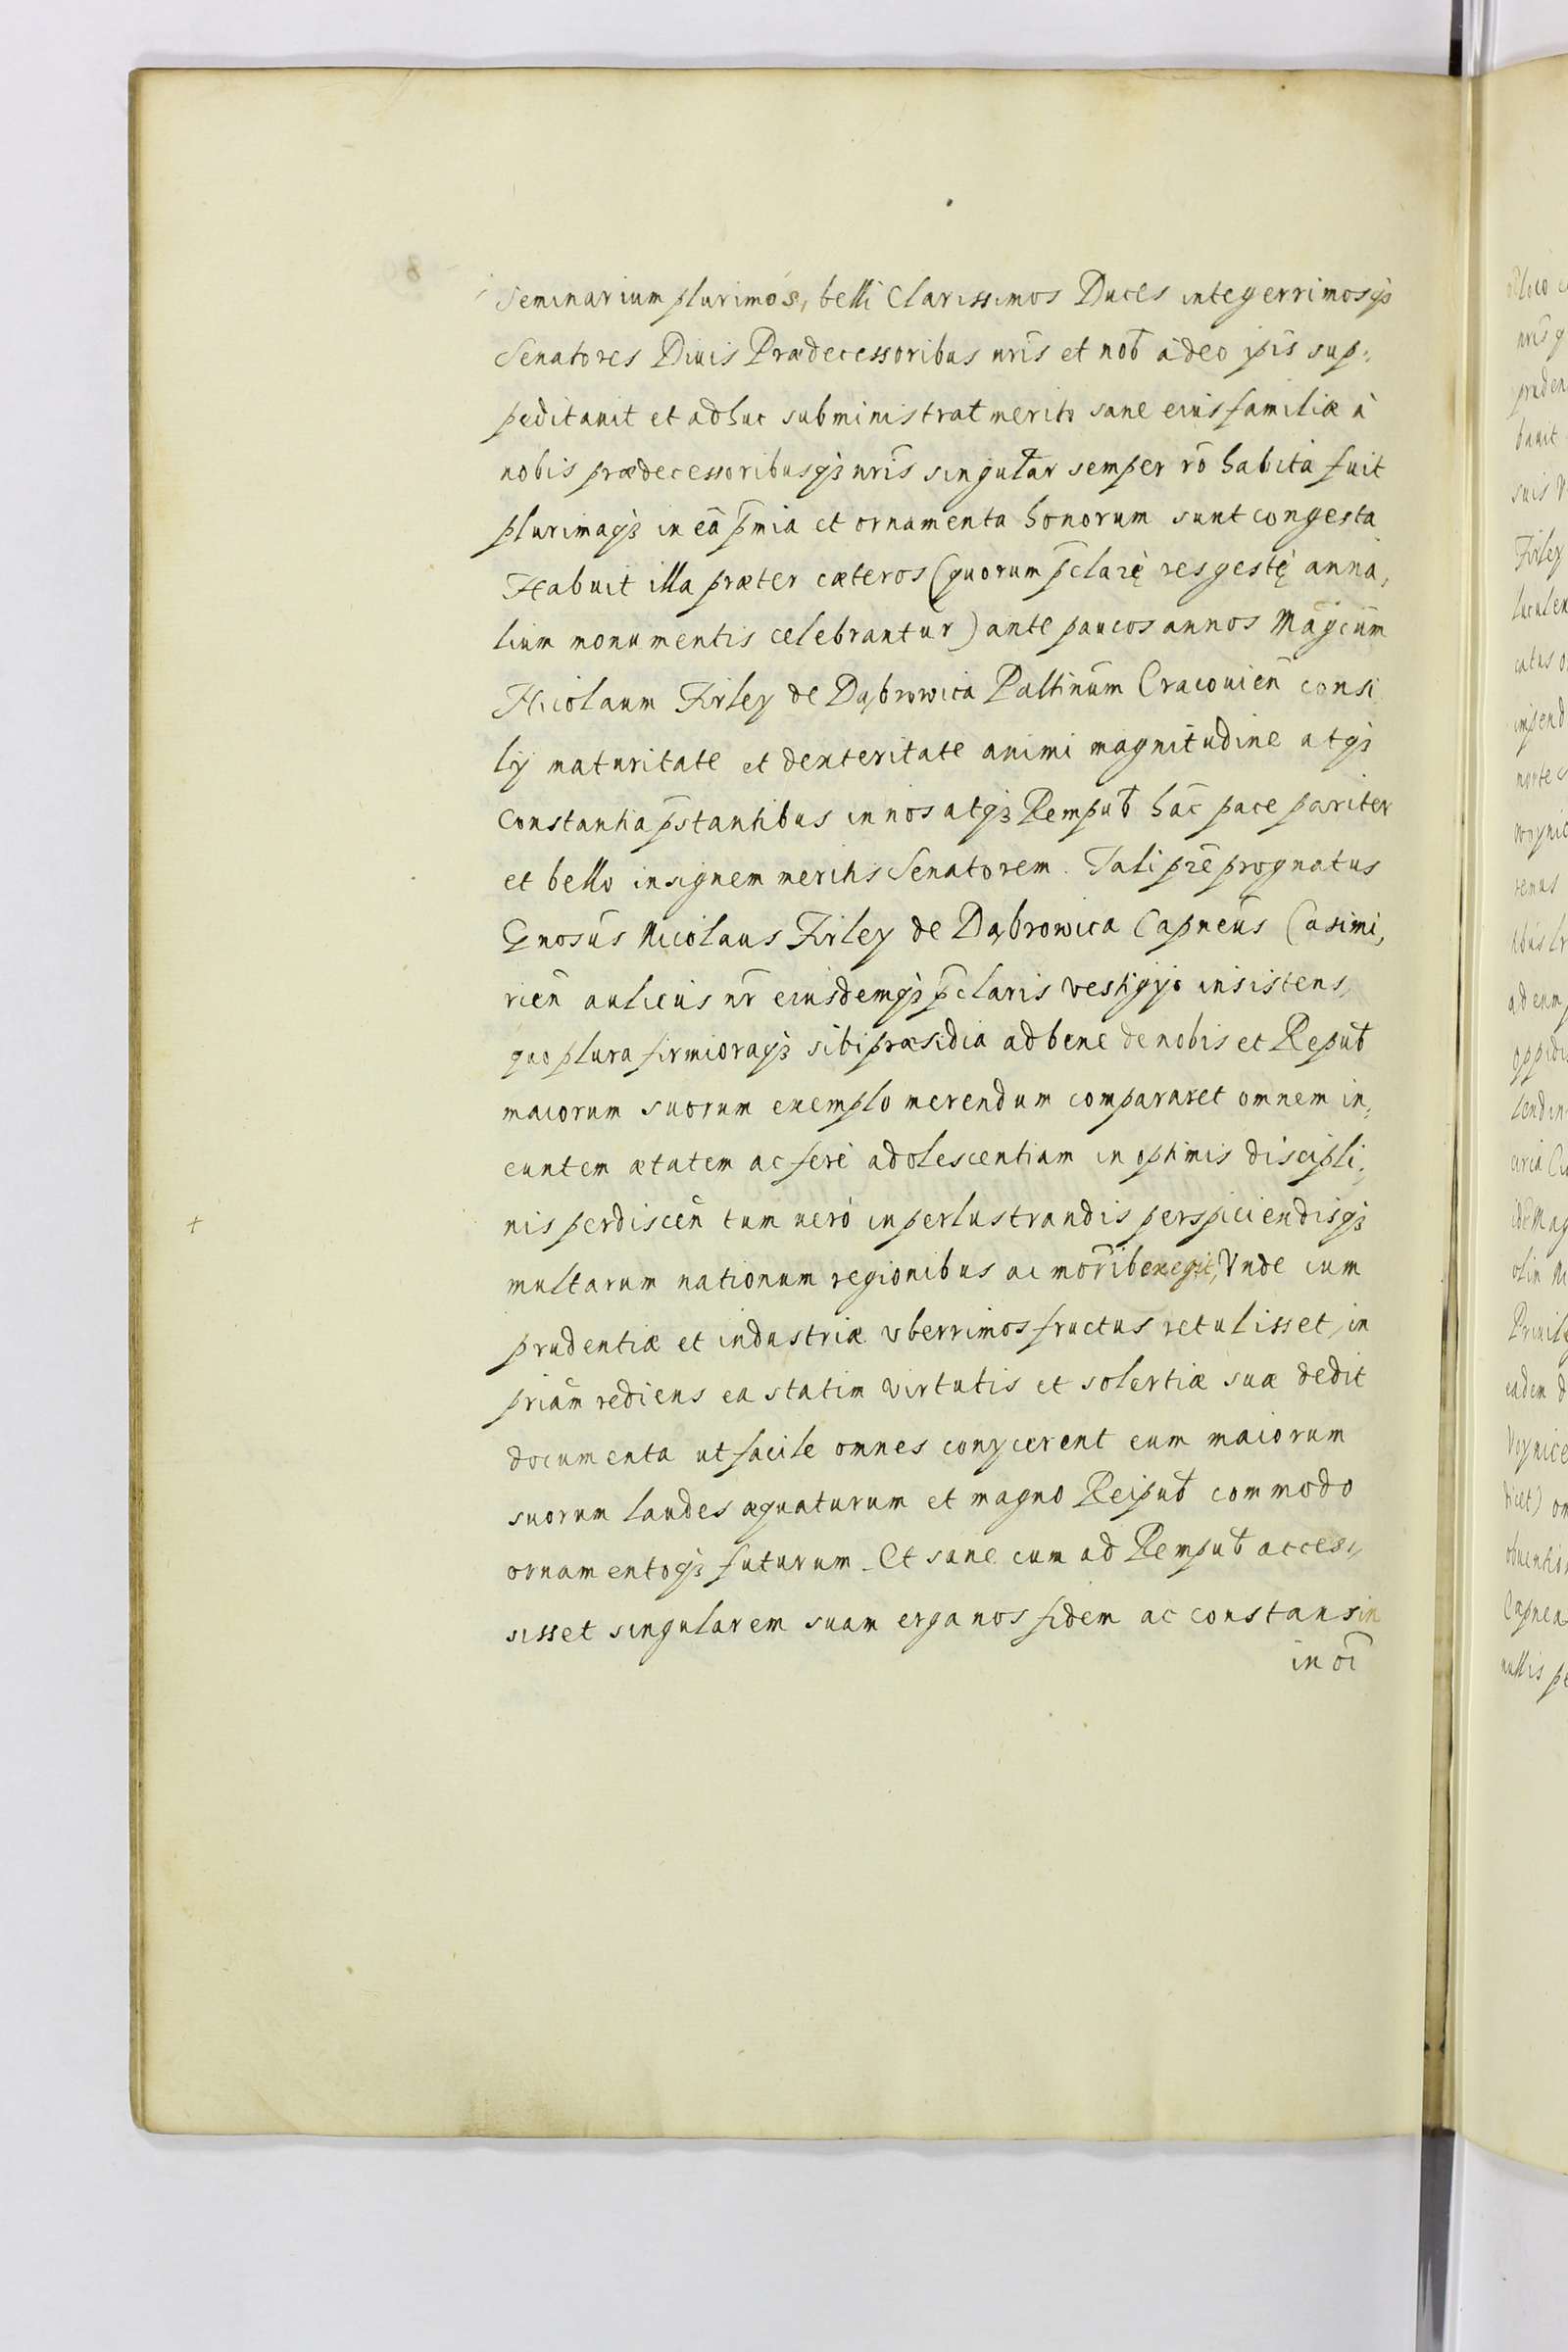 Seminarium plurimos, belli Clarissimos Duces integerrimosqꝫ
Senatores Diuis Prædecessoribus nr̃is et nob̃ adeo ip̃is sup=
peditauit et adhuc subministrat merito sane eius familiæ à
nobis prædecessoribusqꝫ nr̃is singular̃ semper rõ habita fuit
plurimaqꝫ in eã p̃mia et ornamenta honorum sunt congesta
Habuit illa præter cæteros (quorum p̃clarę res gestę anna,
lium monumentis celebrantur) ante paucos annos Mag̃cum
Nicolaum Firley de Dąbrowica Paltinũm Cracouien̄ consi
lÿ maturitate et dexteritate animi magnitudine atqꝫ
constantia p̃stantibus in nos atqꝫ Rempub̃ hãc pace pariter
et bello insignem meritis Senatorem. Tali pr̃e prognatus
Gnosũs Nicolaus Firley de Dąbrowica Capneũs Casimi,
rien̄ aulicus nr̃ eiusdemqꝫ p̃claris vestigÿs insistens,
quo plura firmioraqꝫ sibi præsidia ad bene de nobis et Repub̃
maiorum suorum exemplo merendum compararet omnem in,
euntem ætatem ac ferè adolescentiam in optimis discipli,
nis perdiscen̄ tum uerò in perlustrandis perspiciendisqꝫ
multarum nationum regionibus ac mor̃ib exegit, Vnde cum
prudentiæ et industriæ vberrimos fructus retulisset, in
pr̃iam rediens ea statim virtutis et solertiæ suæ dedit
documenta ut facile omnes conÿcerent eum maiorum
suorum laudes æquaturum et magno Reipub̃ commodo
ornamentoqꝫ futurum. Et sane cum ad Rempub̃ acces,
sisset singularem suam erga nos fidem ac constan
in oĩ